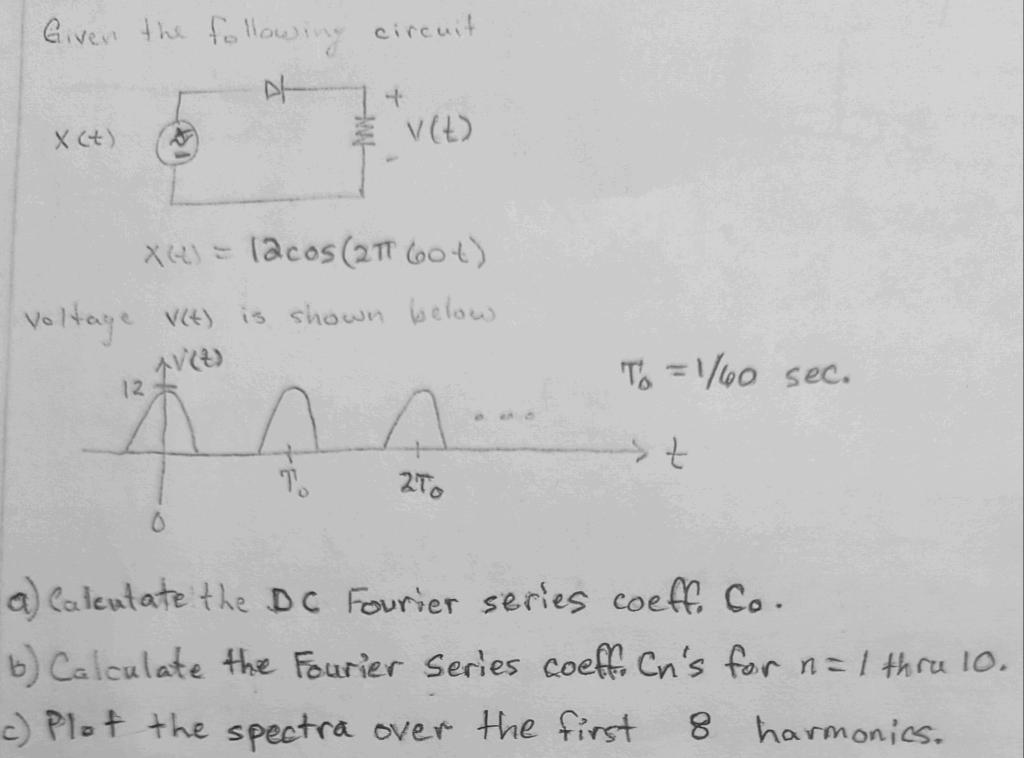 Given the following circuit
+
X(t)
V(t)
-
X(t) = 12cos(2π 60t)
Voltage V(t) is shown below
V(t)
T₀ = 1/60 sec.
12
t
T₀
2T₀
0
a) Calculate the DC Fourier series coeff. Co.
b) Calculate the Fourier Series coeff. Cn's for n = 1 thru 10.
c) Plot the spectra over the first 8 harmonics.